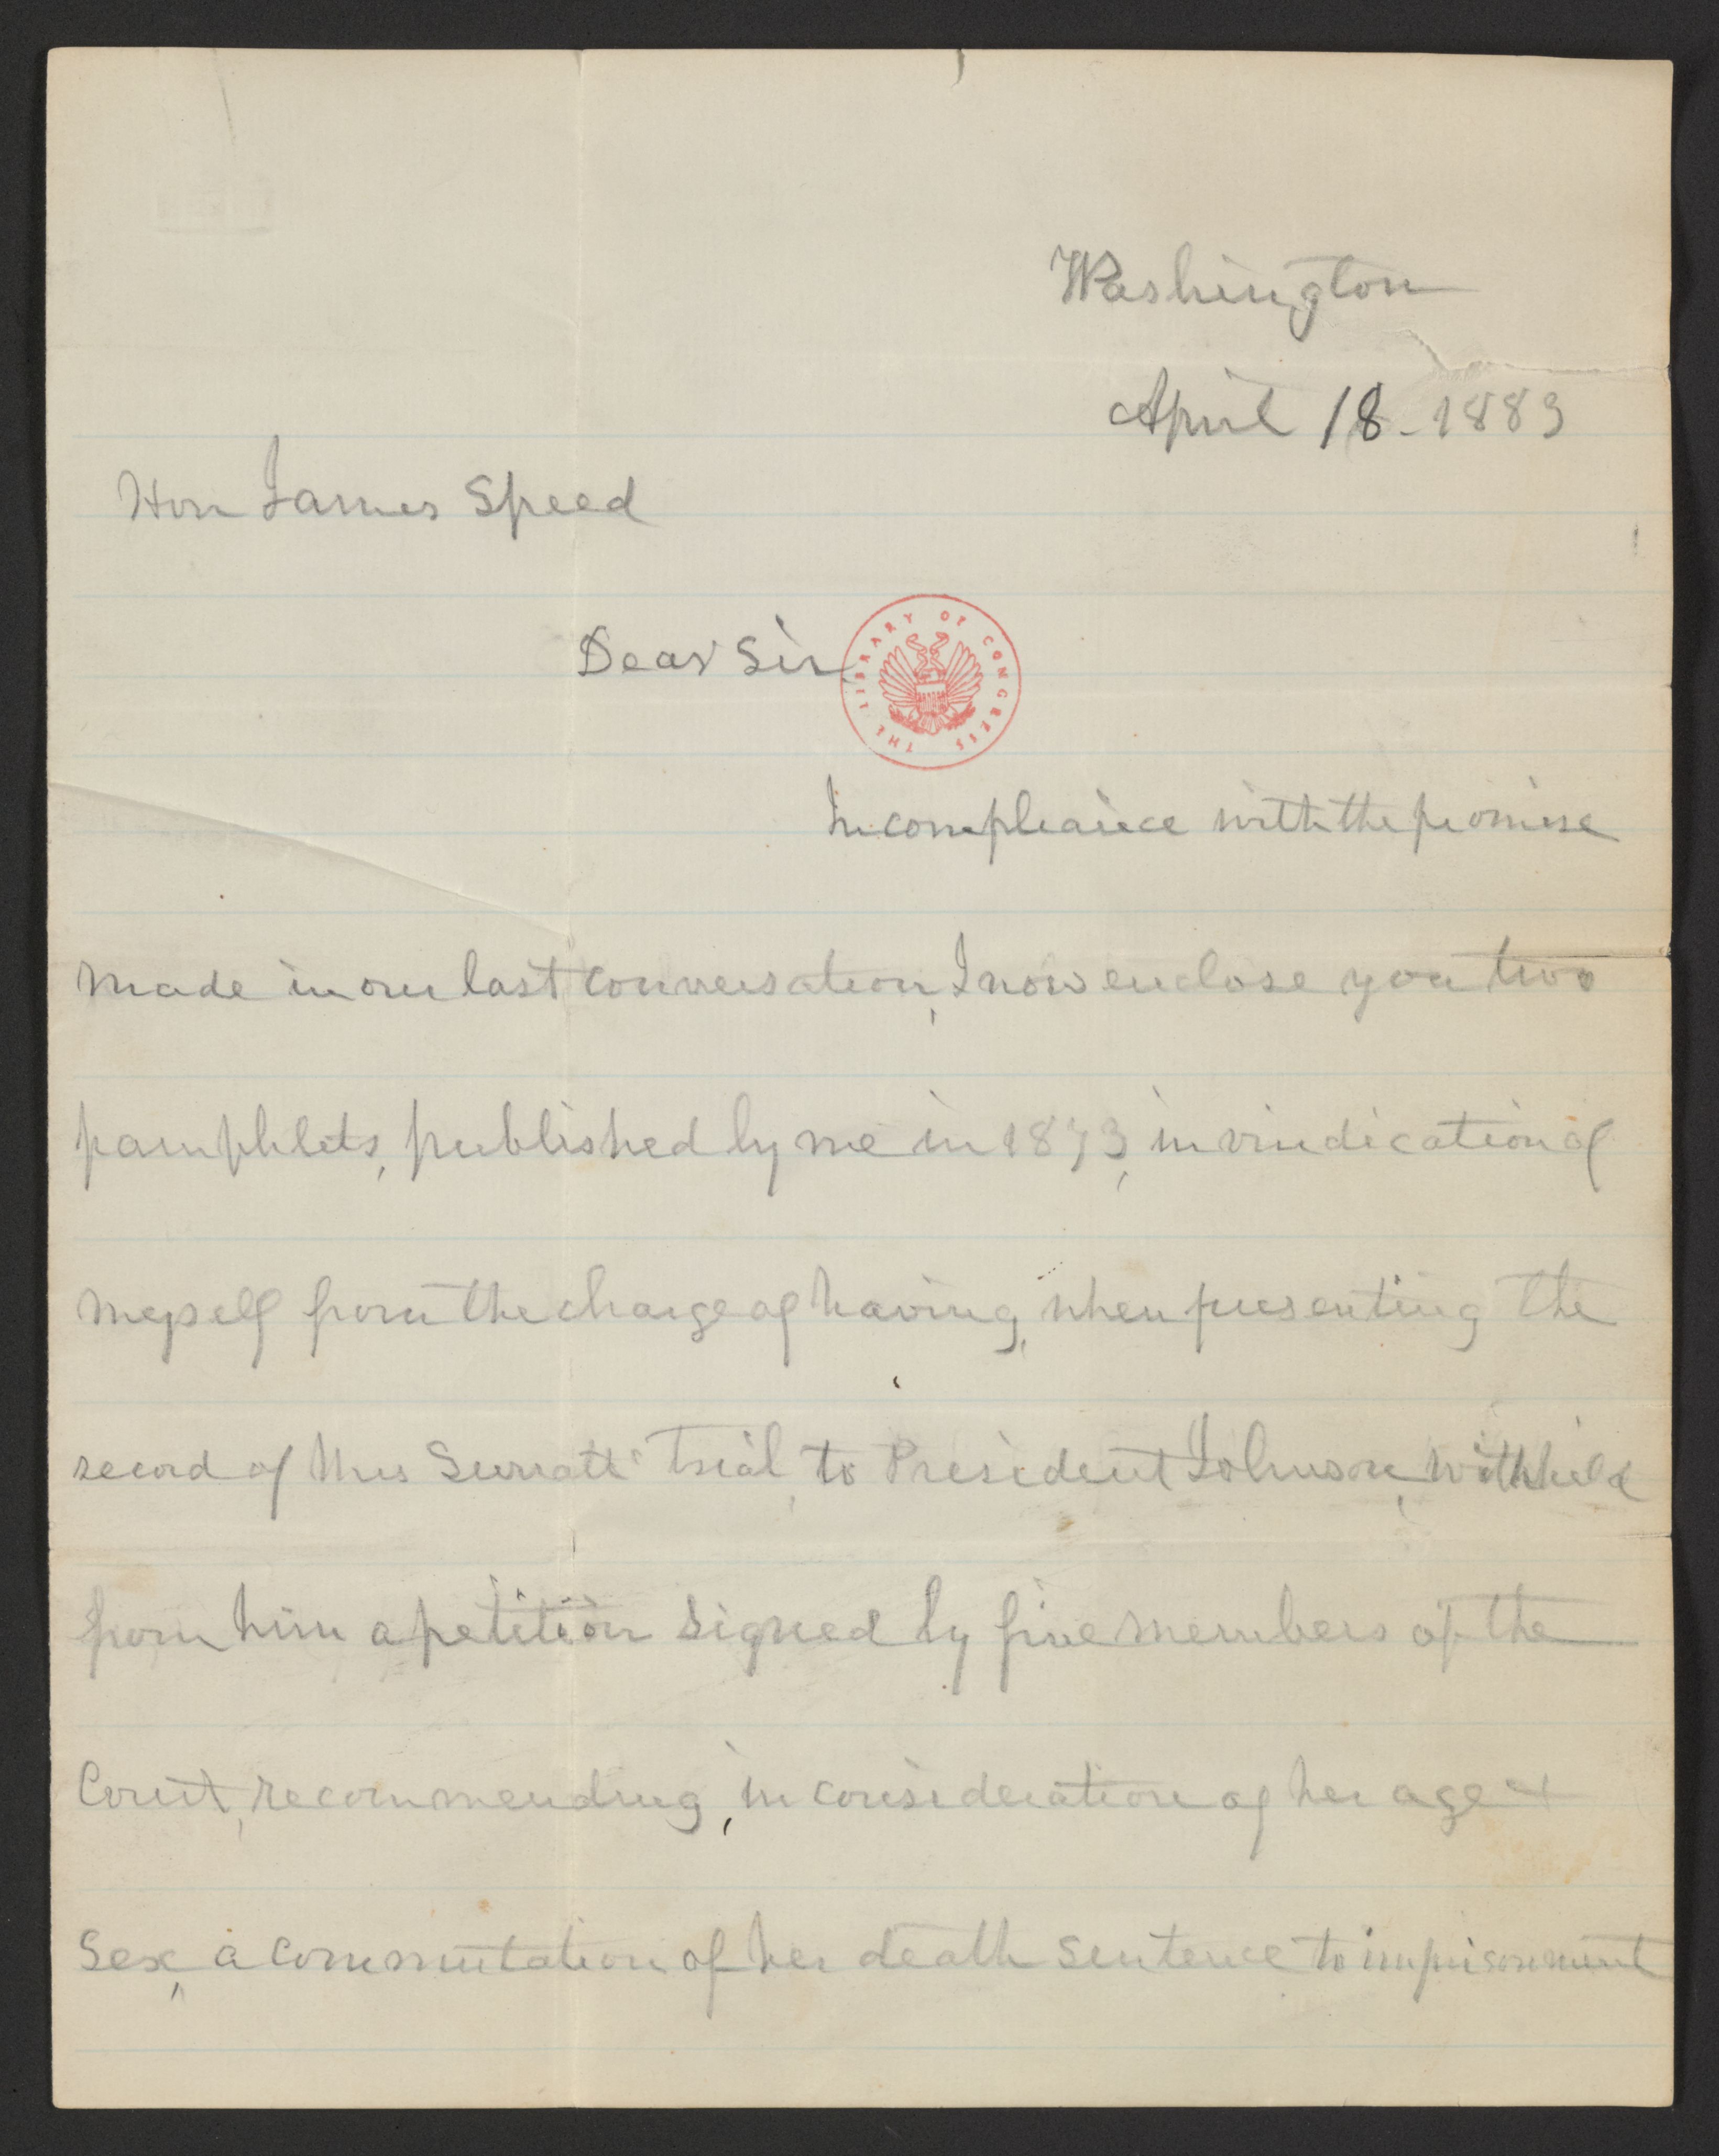 Washington
April 18. 1883
Hon James Speed
Dear Sir
THE LIBRARY OF CONGRESS
In compliance with the promise
made in our last conversation, I now enclose you two
pamphlets, published by me in 1873, in vindication of
myself from the charge of having, when presenting the
record of Mrs Surratt' trial, to President Johnson, withheld
from him a petition signed by five members of the
Court, recommending, in consideration of her age &
sex, a commutation of her death sentence to imprisonment